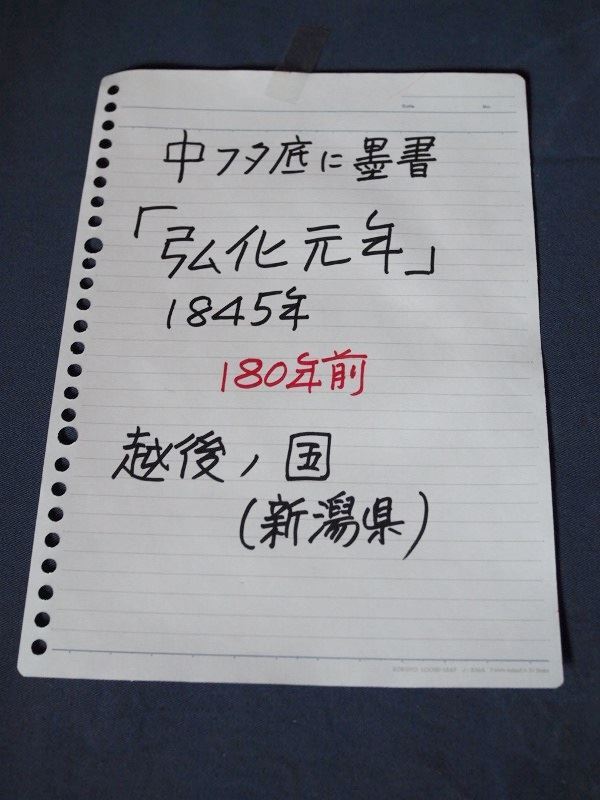 Date
No.
中フタ底に墨書
「弘化元年」
1845年
180年前
越後ノ国
(新潟県)